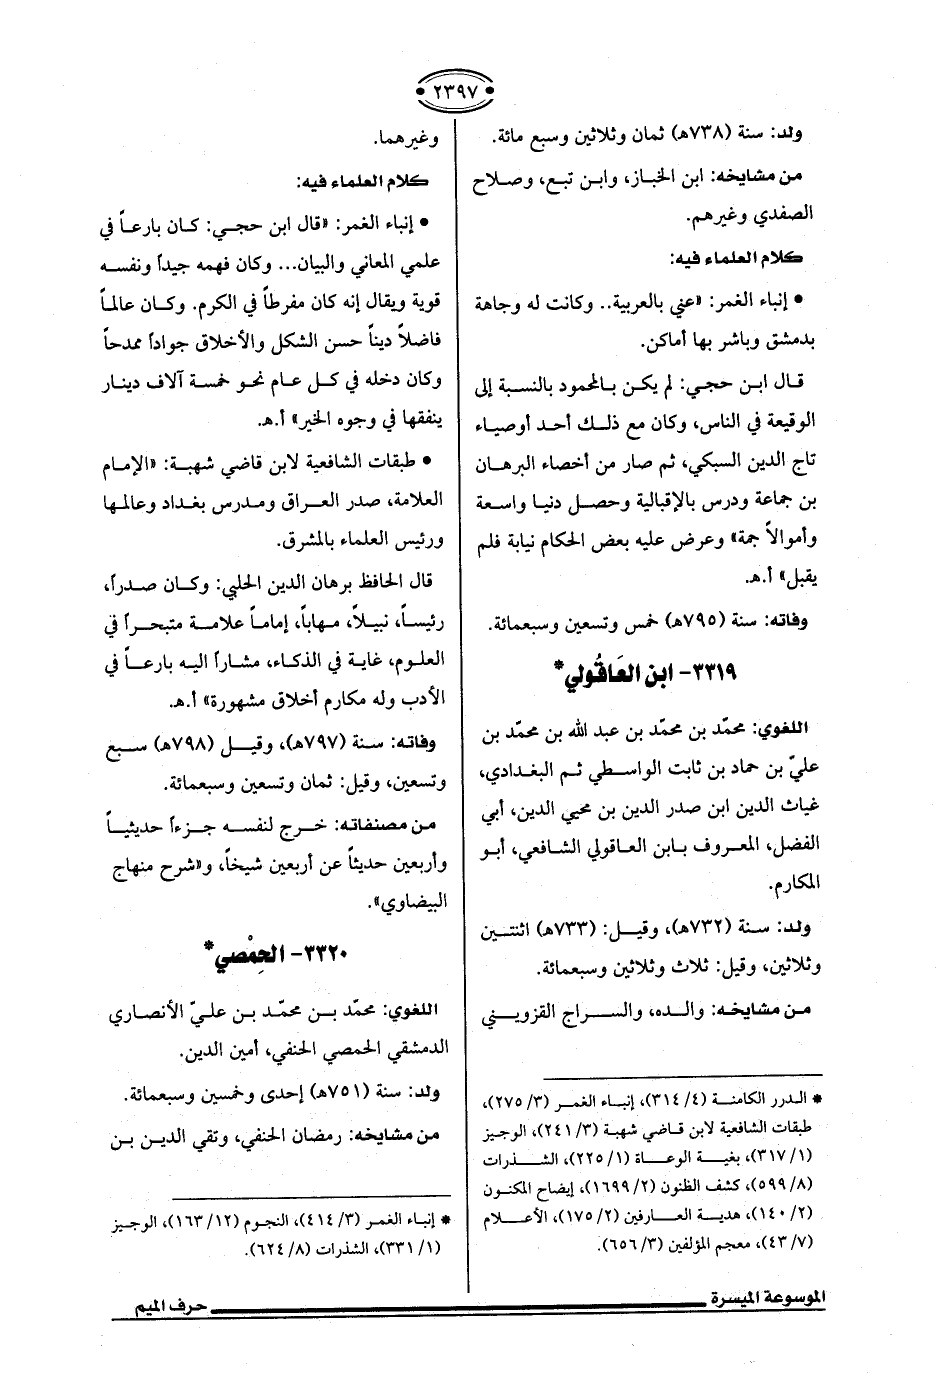 ٢٣٩٧
ولد: سنة (٧٣٨هـ) ثمان وثلاثين وسبع مائة.
من مشايخه: ابن الخباز، وابن تبع، وصلاح
الصفدي وغيرهم.
كلام العلماء فيه:
• إنباء الغمر: «عني بالعربية.. وكانت له وجاهة
بدمشق وباشر بها أماكن.
قال ابن حجي: لم يكن بالمحمود بالنسبة إلى
الوقيعة في الناس، وكان مع ذلك أحد أوصياء
تاج الدين السبكي، ثم صار من أخصاء البرهان
بن جماعة ودرس بالإقبالية وحصل دنيا واسعة
وأموالاً جمة» وعرض عليه بعض الحكام نيابة فلم
يقبل» أ.هـ.
وفاته: سنة (٧٩٥هـ) خمس وتسعين وسبعمائة.
٣٣١٩- ابن العَاقُولي*
اللغوي: محمّد بن محمّد بن عبد الله بن محمّد بن
عليّ بن حماد بن ثابت الواسطي ثم البغدادي،
غياث الدين ابن صدر الدين بن محيي الدين، أبي
الفضل، المعروف بابن العاقولي الشافعي، أبو
المكارم.
ولد: سنة (٧٣٢هـ)، وقيل: (٧٣٣هـ) اثنتين
وثلاثين، وقيل: ثلاث وثلاثين وسبعمائة.
من مشايخه: والده، والسراج القزويني
* الدرر الكامنة (٤/ ٣١٤)، إنباء الغمر (٣/ ٢٧٥)،
طبقات الشافعية لابن قاضي شهبة (٣/ ٢٤١)، الوجيز
(١/ ٣١٧)، بغية الوعاة (١/ ٢٢٥)، الشذرات
(٨/ ٥٩٩)، كشف الظنون (٢/ ١٦٩٩)، إيضاح المكنون
(٢/ ١٤٠)، هدية العارفين (٢/ ١٧٥)، الأعلام
(٧/ ٤٣)، معجم المؤلفين (٣/ ٦٥٦).
وغيرهما.
كلام العلماء فيه:
• إنباء الغمر: «قال ابن حجي: كان بارعاً في
علمي المعاني والبيان... وكان فهمه جيداً ونفسه
قوية ويقال إنه كان مفرطاً في الكرم. وكان عالماً
فاضلاً ديناً حسن الشكل والأخلاق جواداً ممدحاً
وكان دخله في كل عام نحو خمسة آلاف دينار
ينفقها في وجوه الخير» أ.هـ.
• طبقات الشافعية لابن قاضي شهبة: «الإمام
العلامة، صدر العراق ومدرس بغداد وعالمها
ورئيس العلماء بالمشرق.
قال الحافظ برهان الدين الحلبي: وكان صدراً،
رئيساً، نبيلاً، مهاباً، إماماً علامة متبحراً في
العلوم، غاية في الذكاء، مشاراً اليه بارعاً في
الأدب وله مكارم أخلاق مشهورة» أ.هـ.
وفاته: سنة (٧٩٧هـ)، وقيل (٧٩٨هـ) سبع
وتسعين، وقيل: ثمان وتسعين وسبعمائة.
من مصنفاته: خرج لنفسه جزءاً حديثياً
وأربعين حديثاً عن أربعين شيخاً، و«شرح منهاج
البيضاوي».
٣٣٢٠- الحِمْصي*
اللغوي: محمّد بن محمّد بن عليّ الأنصاري
الدمشقي الحمصي الحنفي، أمين الدين.
ولد: سنة (٧٥١هـ) إحدى وخمسين وسبعمائة.
من مشايخه: رمضان الحنفي، وتقي الدين بن
* إنباء الغمر (٣/ ٤١٤)، النجوم (١٢/ ١٦٣)، الوجيز
(١/ ٣٣١)، الشذرات (٨/ ٦٢٤).
الموسوعة الميسرة حرف الميم